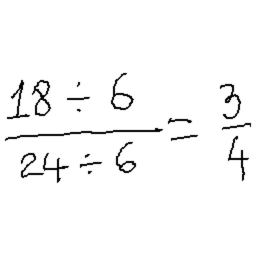 18 ÷ 6 / 24 ÷ 6 = 3 / 4